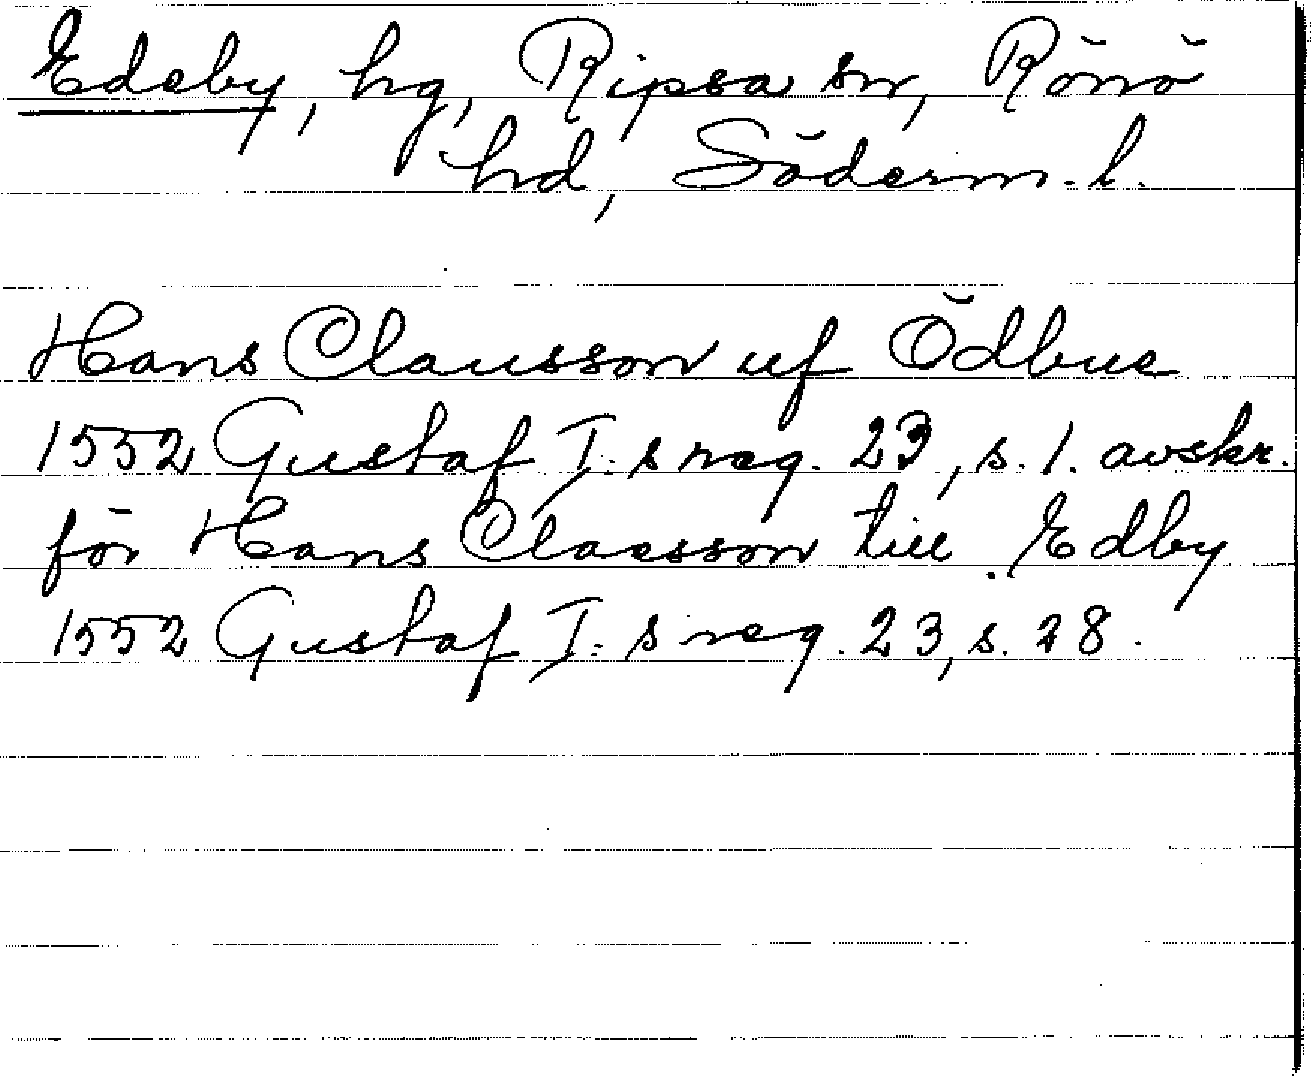 Edeby, hg, Ripsa sn, Rönö
hd, Söderm. l.
Hans Clausson uf Ödbue
1552 Gustaf I:s reg. 23, s. 1. avskr.
för Hans Claesson till Edby
1552 Gustaf I:s reg. 23, s. 28.